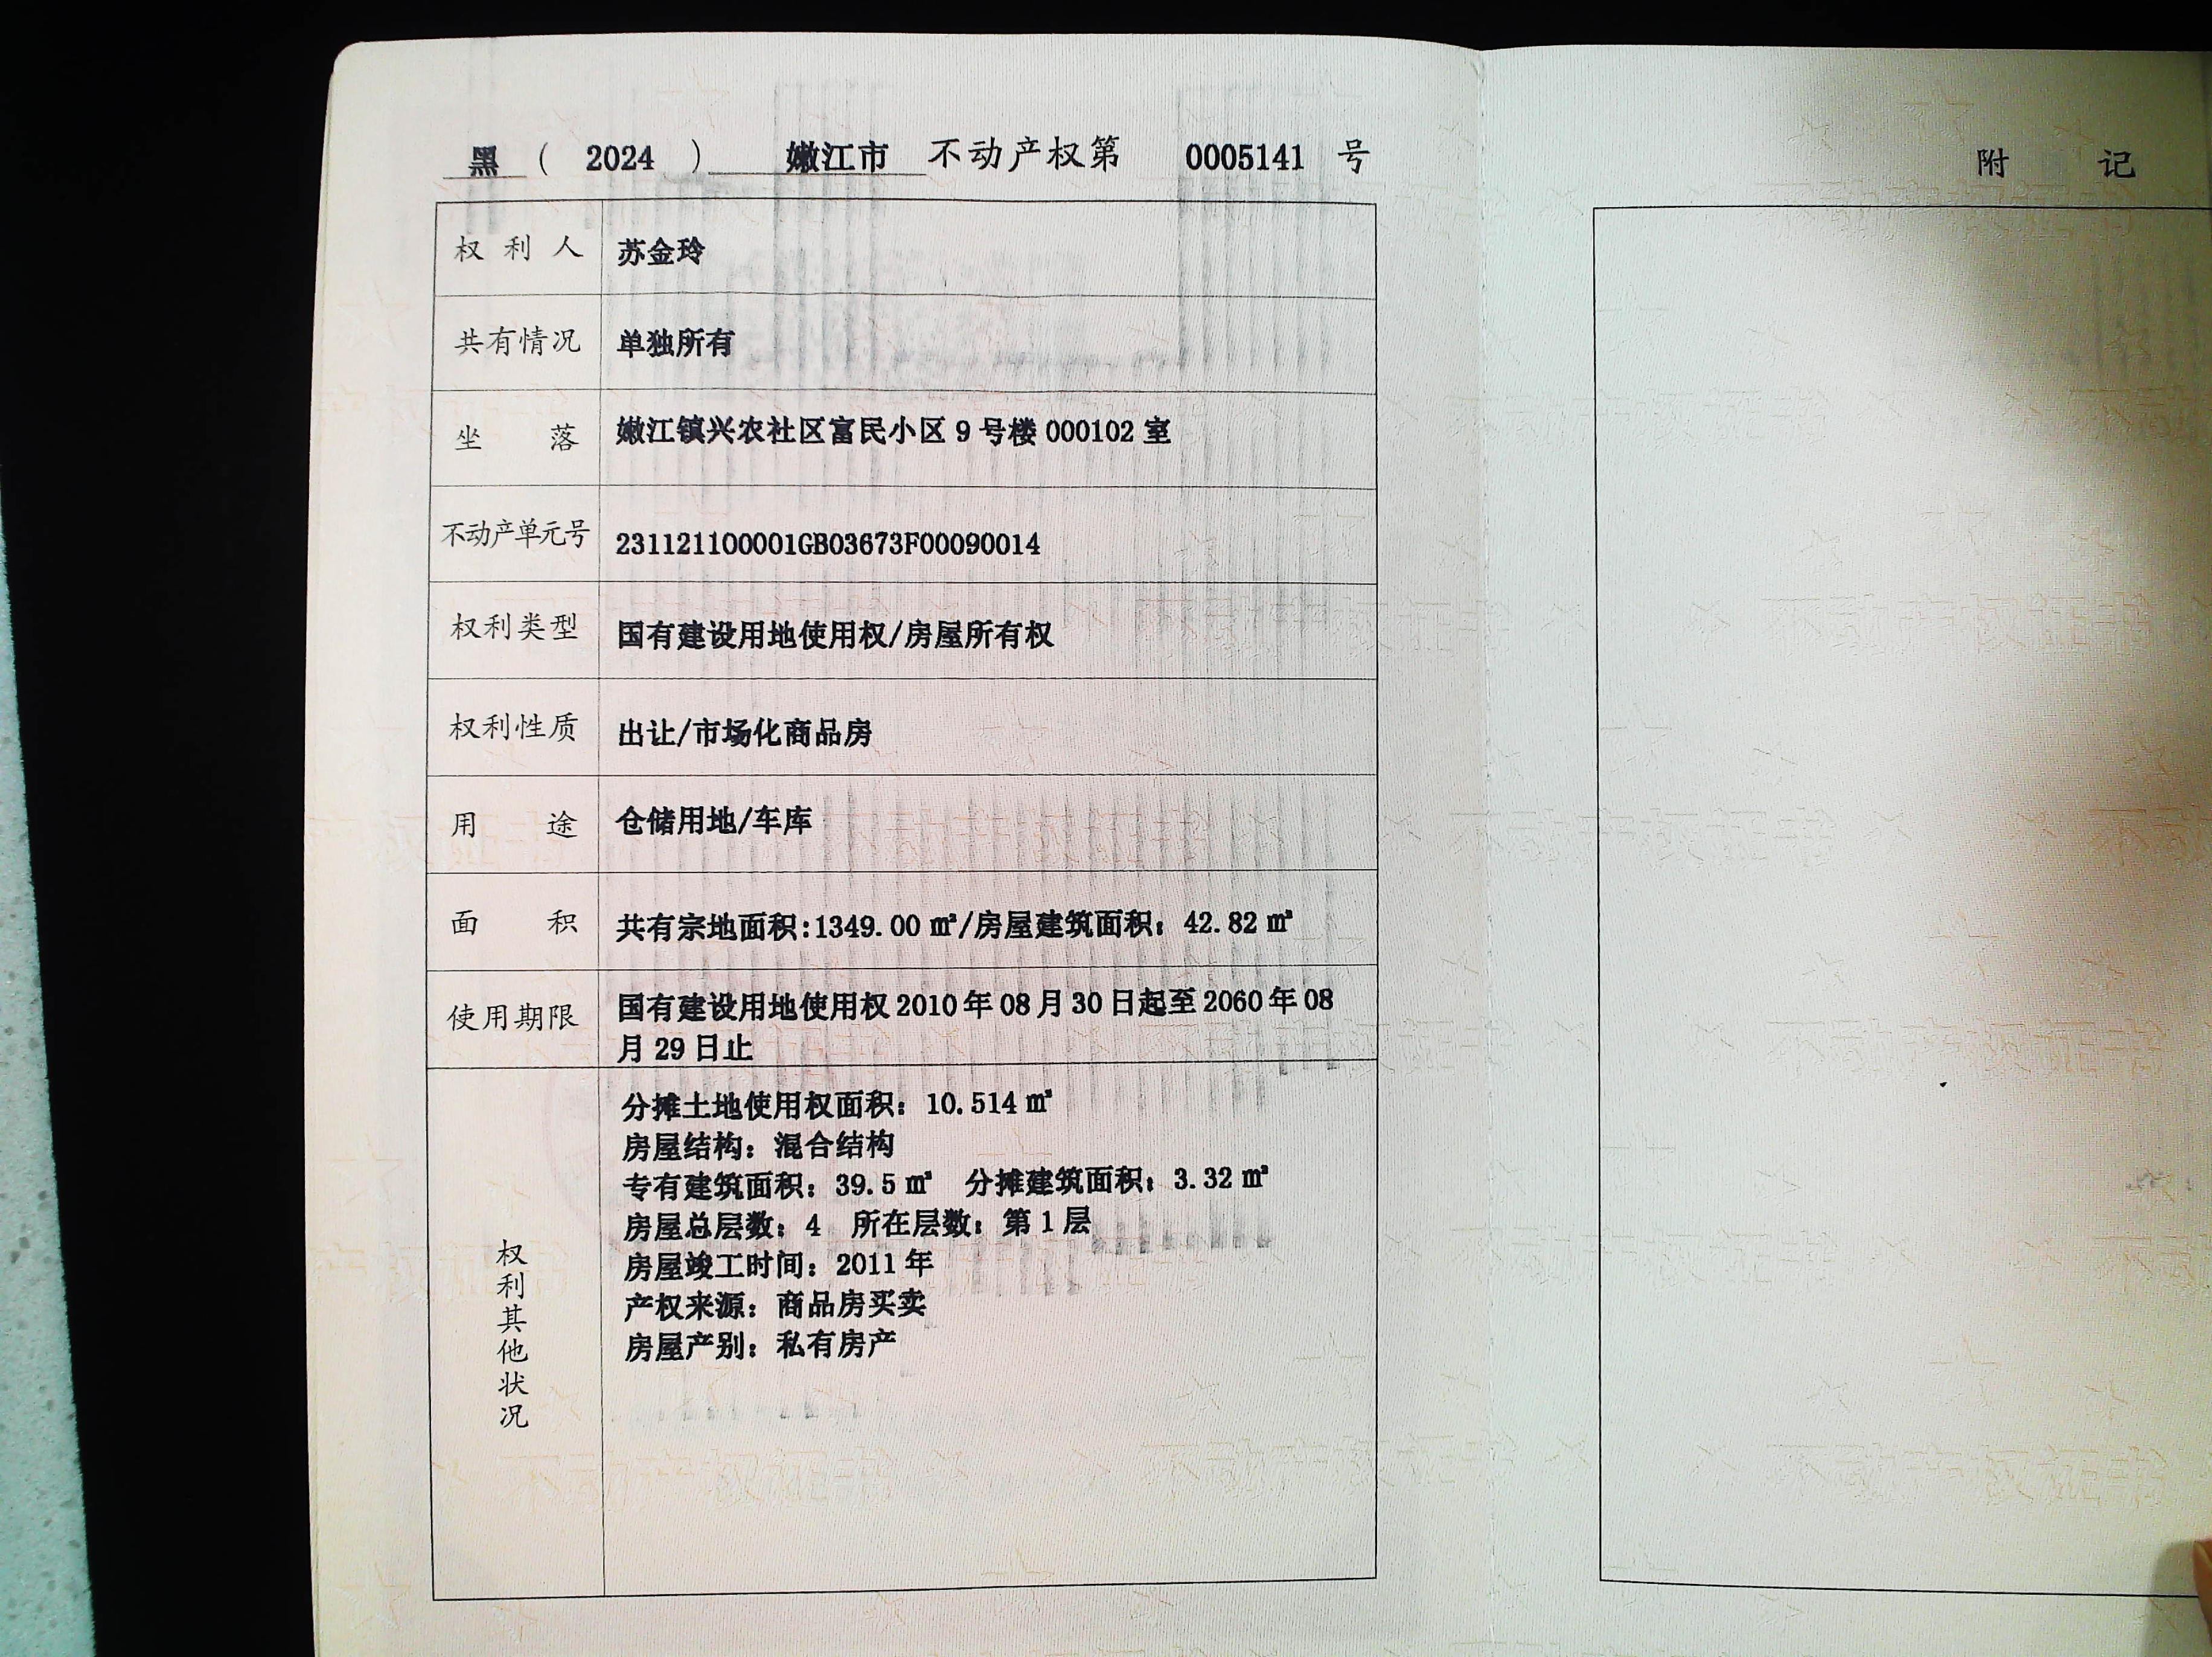 黑 （ 2024 ） 嫩江市 不动产权第 0005141 号
权利人 苏金玲
共有情况 单独所有
坐落 嫩江镇兴农社区富民小区 9 号楼 000102 室
不动产单元号 231121100001GB03673F00090014
权利类型 国有建设用地使用权/房屋所有权
权利性质 出让/市场化商品房
用途 仓储用地/车库
面积 共有宗地面积:1349.00 ㎡/房屋建筑面积：42.82 ㎡
使用期限 国有建设用地使用权 2010 年 08 月 30 日起至 2060 年 08
月 29 日止
权利其他状况
分摊土地使用权面积：10.514 ㎡
房屋结构：混合结构
专有建筑面积：39.5 ㎡ 分摊建筑面积：3.32 ㎡
房屋总层数：4 所在层数：第 1 层
房屋竣工时间：2011 年
产权来源：商品房买卖
房屋产别：私有房产
附记